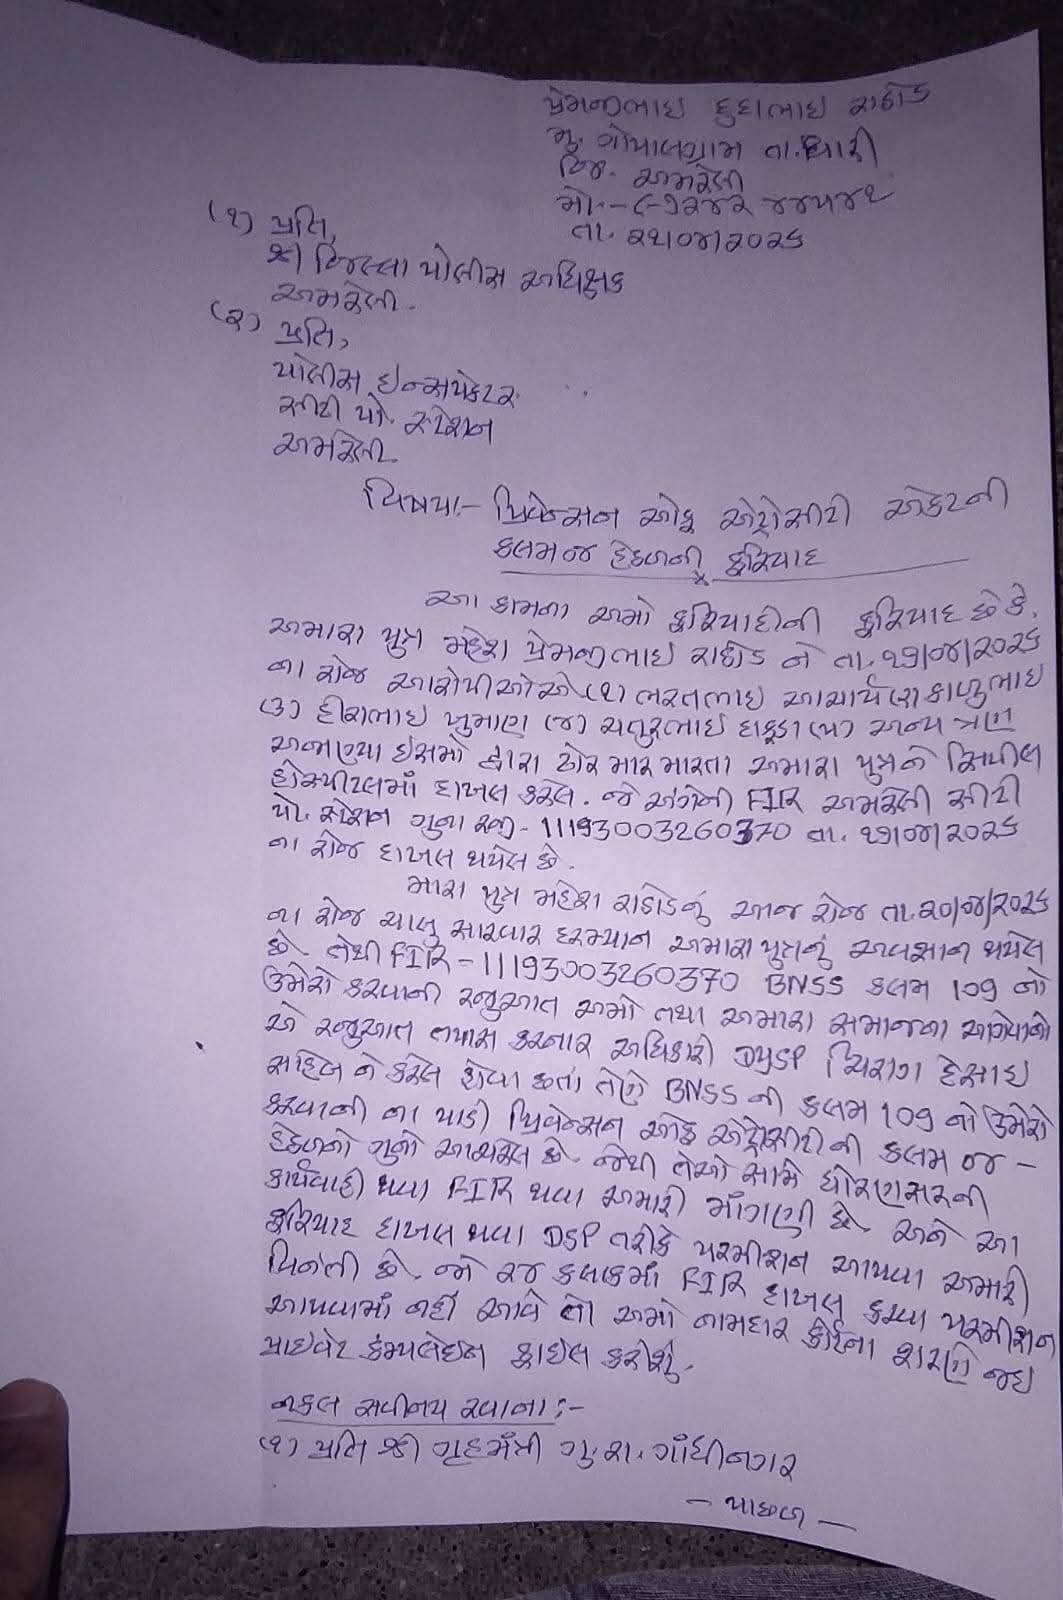 પ્રેમજીભાઇ દુદાભાઇ રાઠોડ
મુ. ગોપાલગ્રામ તા. ધારી
જિ. અમરેલી
મો:-
તા. ૨૧/૦૪/૨૦૨૬
(૧) પ્રતિ,
શ્રી જિલ્લા પોલીસ અધિક્ષક
અમરેલી.
(૨) પ્રતિ,
પોલીસ ઇન્સપેકટર
સીટી પો. સ્ટેશન
અમરેલી
વિષય:- પ્રિવેન્સન ઓફ એટ્રોસીટી એકટની
કલમ ૪ હેઠળની ફરિયાદ
આ કામના અમો ફરિયાદીની ફરિયાદ છે કે,
અમારા પુત્ર મહેશ પ્રેમજીભાઇ રાઠોડ ને તા. ૧૭/૪/૨૦૨૬
ના રોજ આરોપીઓએ (૧) ભરતભાઇ આચાર્ય (૨) કાળુભાઇ
(૩) હીરાભાઇ ખુમાણ (૪) ચતુરભાઇ (૫) અન્ય ત્રણ
અજાણ્યા ઇસમો દ્વારા ઢોર માર મારતા અમારા પુત્રને સિવીલ
હોસ્પીટલમાં દાખલ કરેલ. જે અંગેની FIR અમરેલી સીટી
પો. સ્ટેશન ગુના રજી- 11193003260370 તા. ૧૭/૪/૨૦૨૬
ના રોજ દાખલ થયેલ છે.
મારા પુત્ર મહેશ રાઠોડનું આજ રોજ તા. ૨૦/૪/૨૦૨૬
ના રોજ ચાલુ સારવાર દરમ્યાન અમારા પુત્રનું અવસાન થયેલ
છે તેથી FIR - 11193003260370 BNSS કલમ 109 નો
ઉમેરો કરવાની રજુઆત અમો તથા અમારા સમાજના આગેવાનો
એ રજુઆત તપાસ કરનાર અધિકારી DYSP ચિરાગ દેસાઇ
સાહેબ ને કરેલ હોવા છતાં તેણે BNSS ની કલમ 109 નો ઉમેરો
કરવાની ના પાડી પ્રિવેન્સન ઓફ એટ્રોસીટી ની કલમ ૪ -
હેઠળનો ગુનો આચરેલ છે જેથી તેઓ સામે ધોરણસરની
કાર્યવાહી થવા FIR થવા અમારી માંગણી છે. અને આ
ફરિયાદ દાખલ થવા DSP તરીકે પરમીશન આપવા અમારી
વિનંતી છે. જો ૨૪ કલાકમાં FIR દાખલ કરવા પરમીશન
આપવામાં નહીં આવે તો અમો નામદાર કોર્ટના શરણે જઇ
પ્રાઇવેટ કમ્પલેઇન ફાઇલ કરીશું.
નકલ સવીનય રવાના:-
(૧) પ્રતિ શ્રી ગૃહમંત્રી ગુ.રા. ગાંધીનગર
- પાછળ -